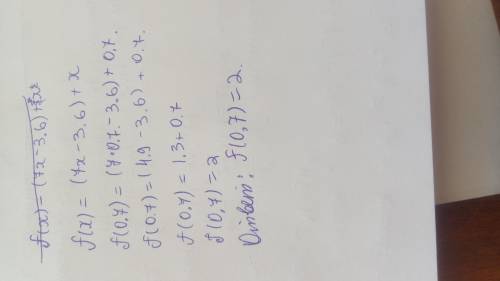 f(x) = (7x-3.6)+8x
f(x) = (7x-3.6)+x
f(0.7) = (7·0.7-3.6)+0.7.
f(0.7) = (4.9-3.6)+0.7.
f(0.7) = 1.3+0.7
f(0,7) = 2
Ответ: f(0,7) = 2.